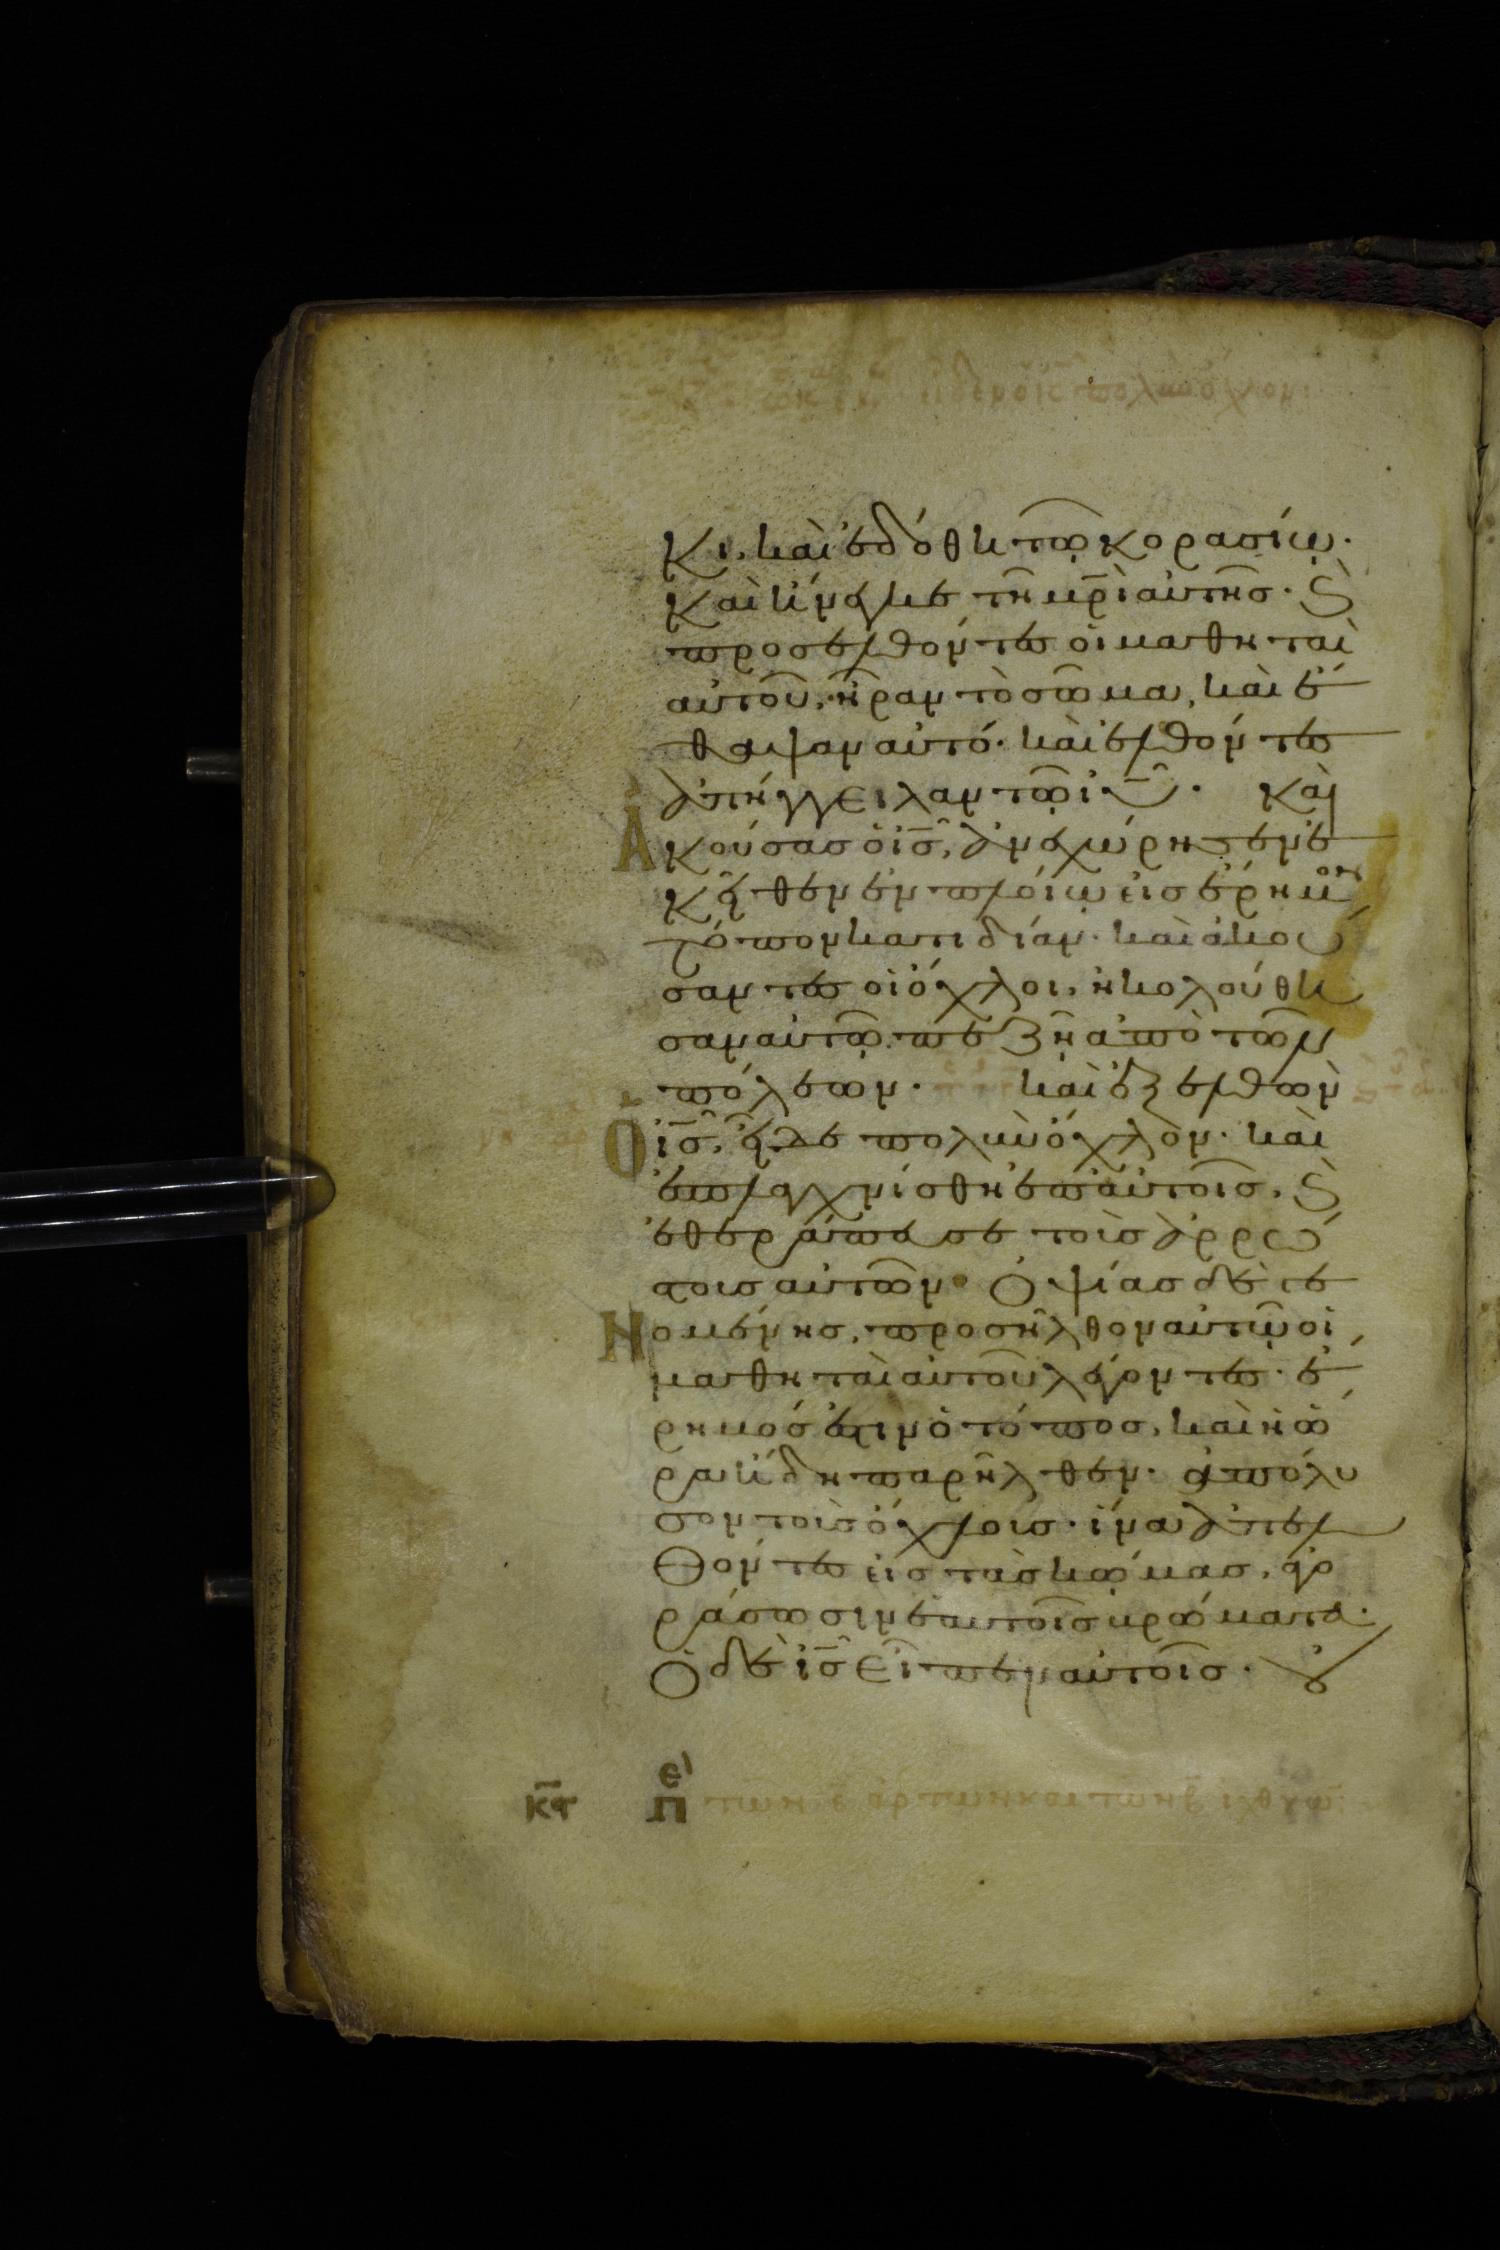 εἶδεν ὁ ις πολὺν ὄχλον
κι, καὶ ἐδόθη τῶ κορασίω·
καὶ ἤνεγκε τῆ μρὶ αὐτῆς· καὶ
προσελθόντες οἱ μαθηταὶ
αὐτοῦ, ἦραν τὸ σῶμα, καὶ ἔ
θαψαν αὐτό· καὶ ἐλθόντες
ἀπήγγειλαν τῶ ιυ· Καὶ
Ἀκούσας ὁ ις, ἀνεχώρησεν ἐ
κεῖθεν ἐν πλοίω εἰς ἔρημον
τόπον κατιδίαν· καὶ ἀκού
σαντες οἱ ὄχλοι, ἠκολούθη
σαν αὐτῶ πεζῆ ἀπὸ τῶν
πόλεων· καὶ ἐξελθὼν
Ὁ ις, εἶδε πολὺν ὄχλον· καὶ
ἐσπλαγχνίσθη ἐπ' αὐτοῖς, καὶ
ἐθεράπευσε τοὺς ἀρρώ
στους αὐτῶν· Ὀψίας δὲ γε
Νομένης, προσῆλθον αὐτῶ οἱ
μαθηταὶ αὐτοῦ λέγοντες· ἔ
ρημός ἐστιν ὁ τόπος, καὶ ἡ ὥ
ρα ἤδη παρῆλθεν· ἀπόλυ
σον τοὺς ὄχλους· ἵνα ἀπελ
θόντες εἰς τὰς κώμας, ἀγο
ράσωσιν ἑαυτοῖς βρώματα·
Ὁ δὲ ις εἶπεν αὐτοῖς· οὐ
κϛ π τῶν ε ἄρτων καὶ τῶν β ἰχθύων